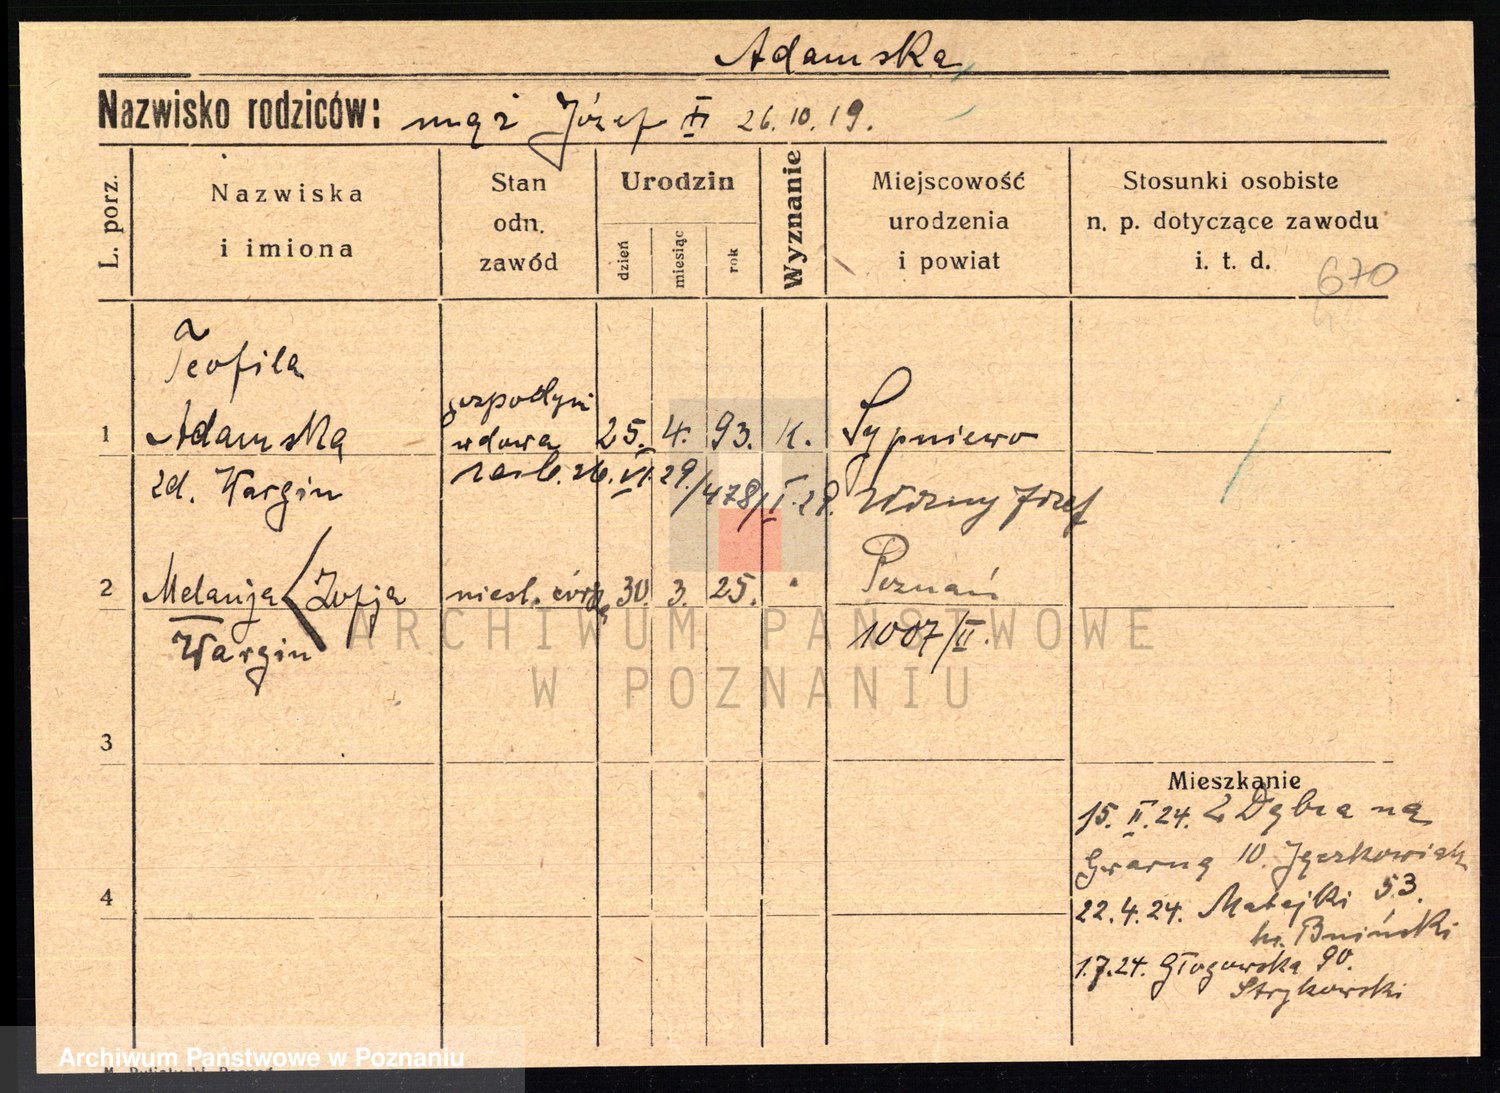 Adamska
Nazwisko rodziców: mąż Józef † 26.10.19.
L. porz.
Nazwiska
i imiona
Stan
odn.
zawód
Urodzin
dzień
miesiąc
rok
Wyznanie
Miejscowość
urodzenia
i powiat
Stosunki osobiste
n. p. dotyczące zawodu
i. t. d.
670
Teofila
gospodyni
1 Adamska wdowa 25. 4. 93. K. Sypniewo
zd. Wargin zaśl. 26. VI. 29./478/II.29. Józef
2 Melanja Zofja nieśl. córka 30. 3. 25. " Poznań
Wargin 1007/II.
ARCHIWUM PAŃSTWOWE
W POZNANIU
3
Mieszkanie
15. II. 24. Z Dębca na
Gwarną 10. Jęczkowiak
4
22.4.24. Matejki 53.
hr. Bniński
1.7.24. Głogowska 90.
Strykowski
Archiwum Państwowe w Poznaniu